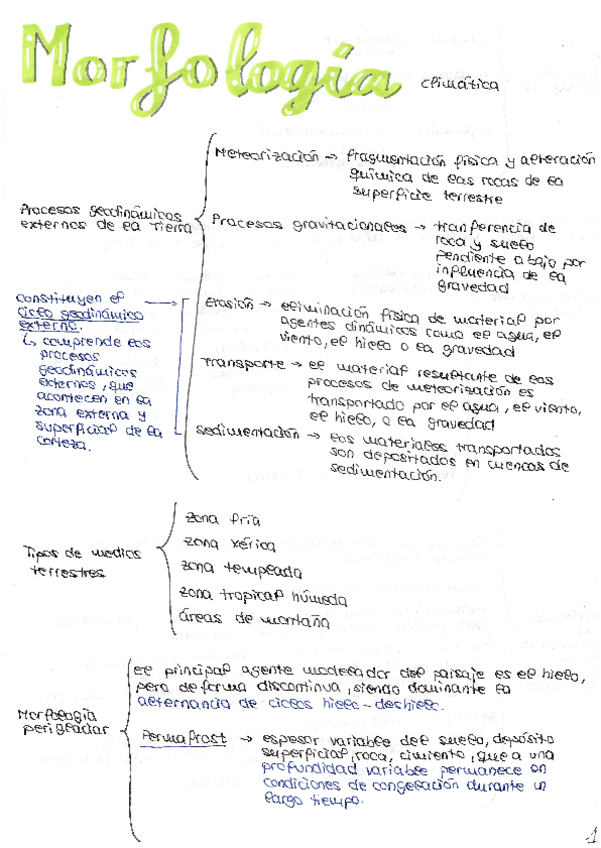 Morfología climática
Procesos geodinámicos
externos de la Tierra
Meteorización → fragmentación física y alteración
química de las rocas de la
superficie terrestre
Procesos gravitacionales → tranferencia de
roca y suelo
pendiente abajo por
influencia de la
gravedad
constituyen el
ciclo geodinámico
externo.
↳ comprende los
procesos
geodinámicos
externos, que
acontecen en la
zona externa y
superficial de la
corteza.
Erosión → eliminación física de material por
agentes dinámicos como el agua, el
viento, el hielo o la gravedad
Transporte → el material resultante de los
procesos de meteorización es
transportado por el agua, el viento,
el hielo, o la gravedad
Sedimentación → los materiales transportados
son depositados en cuencas de
sedimentación.
Tipos de medios
terrestres
zona fría
zona xérica
zona templada
zona tropical húmeda
áreas de montaña
Morfología
periglaciar
el principal agente modelador del paisaje es el hielo,
pero de forma discontinua, siendo dominante la
alternancia de ciclos hielo-deshielo.
Permafrost → espesor variable del suelo, depósito
superficial, roca, cimiento, que a una
profundidad variable permanece en
condiciones de congelación durante un
largo tiempo.
1